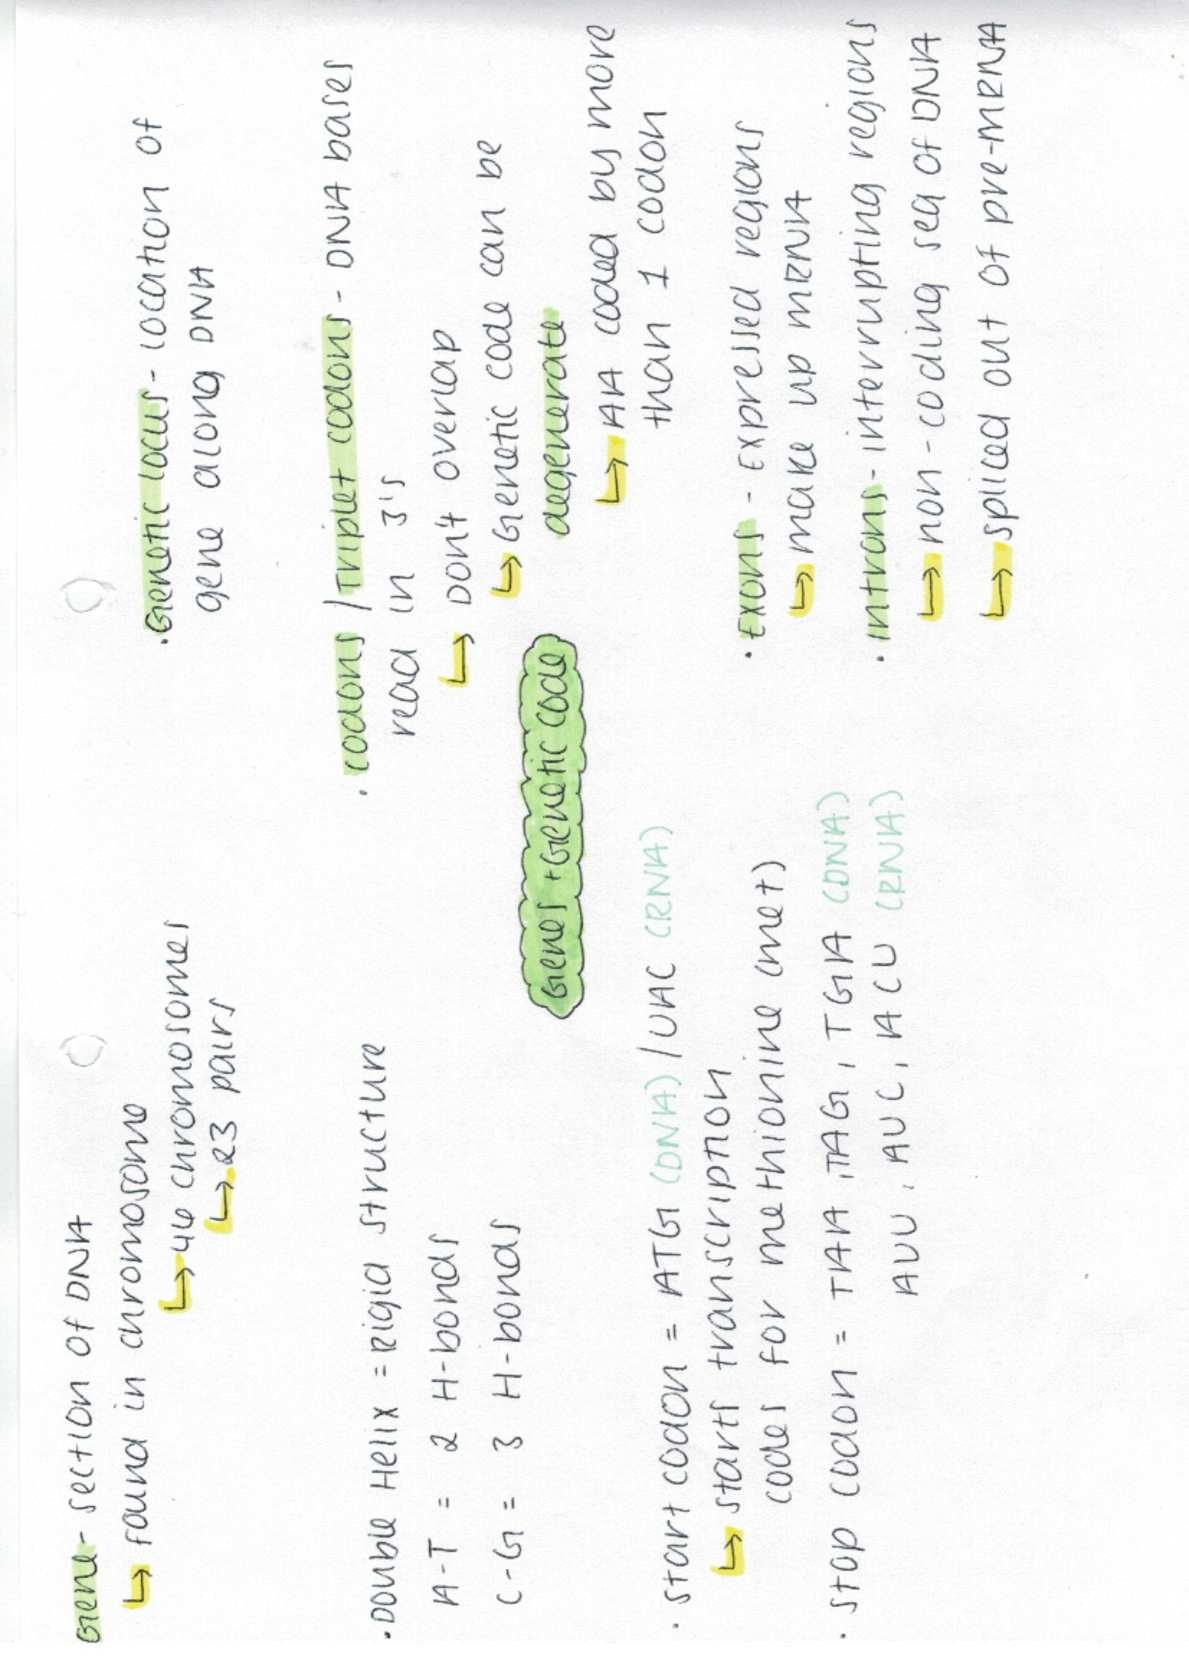 Gene - section of DNA
↳ found in chromosome
↳ 46 chromosomes
↳ 23 pairs
• Double Helix = Rigid structure
A-T = 2 H-bonds
C-G = 3 H-bonds
• Start codon = ATG (DNA) / UAC (RNA)
↳ starts transcription
codes for methionine (met)
• Stop codon = TAA, TAG, TGA (DNA)
AUU, AUC, ACU (RNA)
Genes + Genetic Code
• Genetic locus - location of
gene along DNA
• Codons / Triplet codons - DNA bases
read in 3's
↳ Don't overlap
↳ Genetic code can be
degenerate
↳ AA coded by more
than 1 codon
• Exons - Expressed regions
↳ make up mRNA
• Introns - interrupting regions
↳ non-coding seq of DNA
↳ spliced out of pre-mRNA